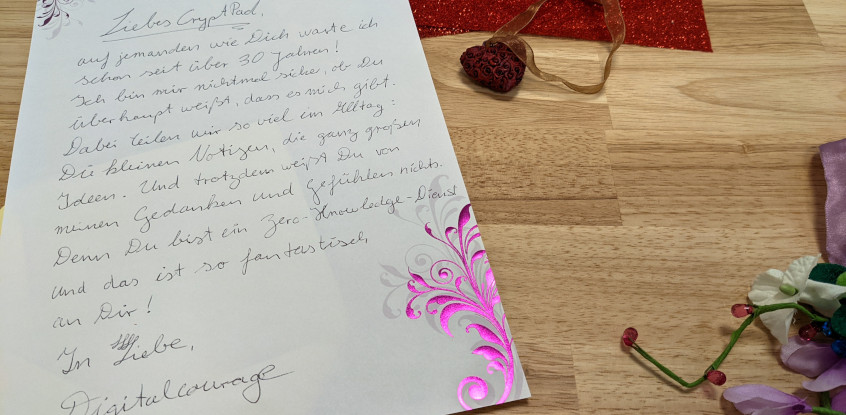 Liebes CryptPad,
auf jemanden wie Dich warte ich
schon seit über 30 Jahren!
Ich bin mir nichtmal sicher, ob Du
überhaupt weißt, dass es mich gibt.
Dabei teilen wir so viel im Alltag:
Die kleinen Notizen, die ganz großen
Ideen. Und trotzdem weißt Du von
meinen Gedanken und Gefühlen nichts.
Denn Du bist ein Zero-Knowledge-Dienst
und das ist so fantastisch
an Dir!
In Liebe,
Digitalcourage